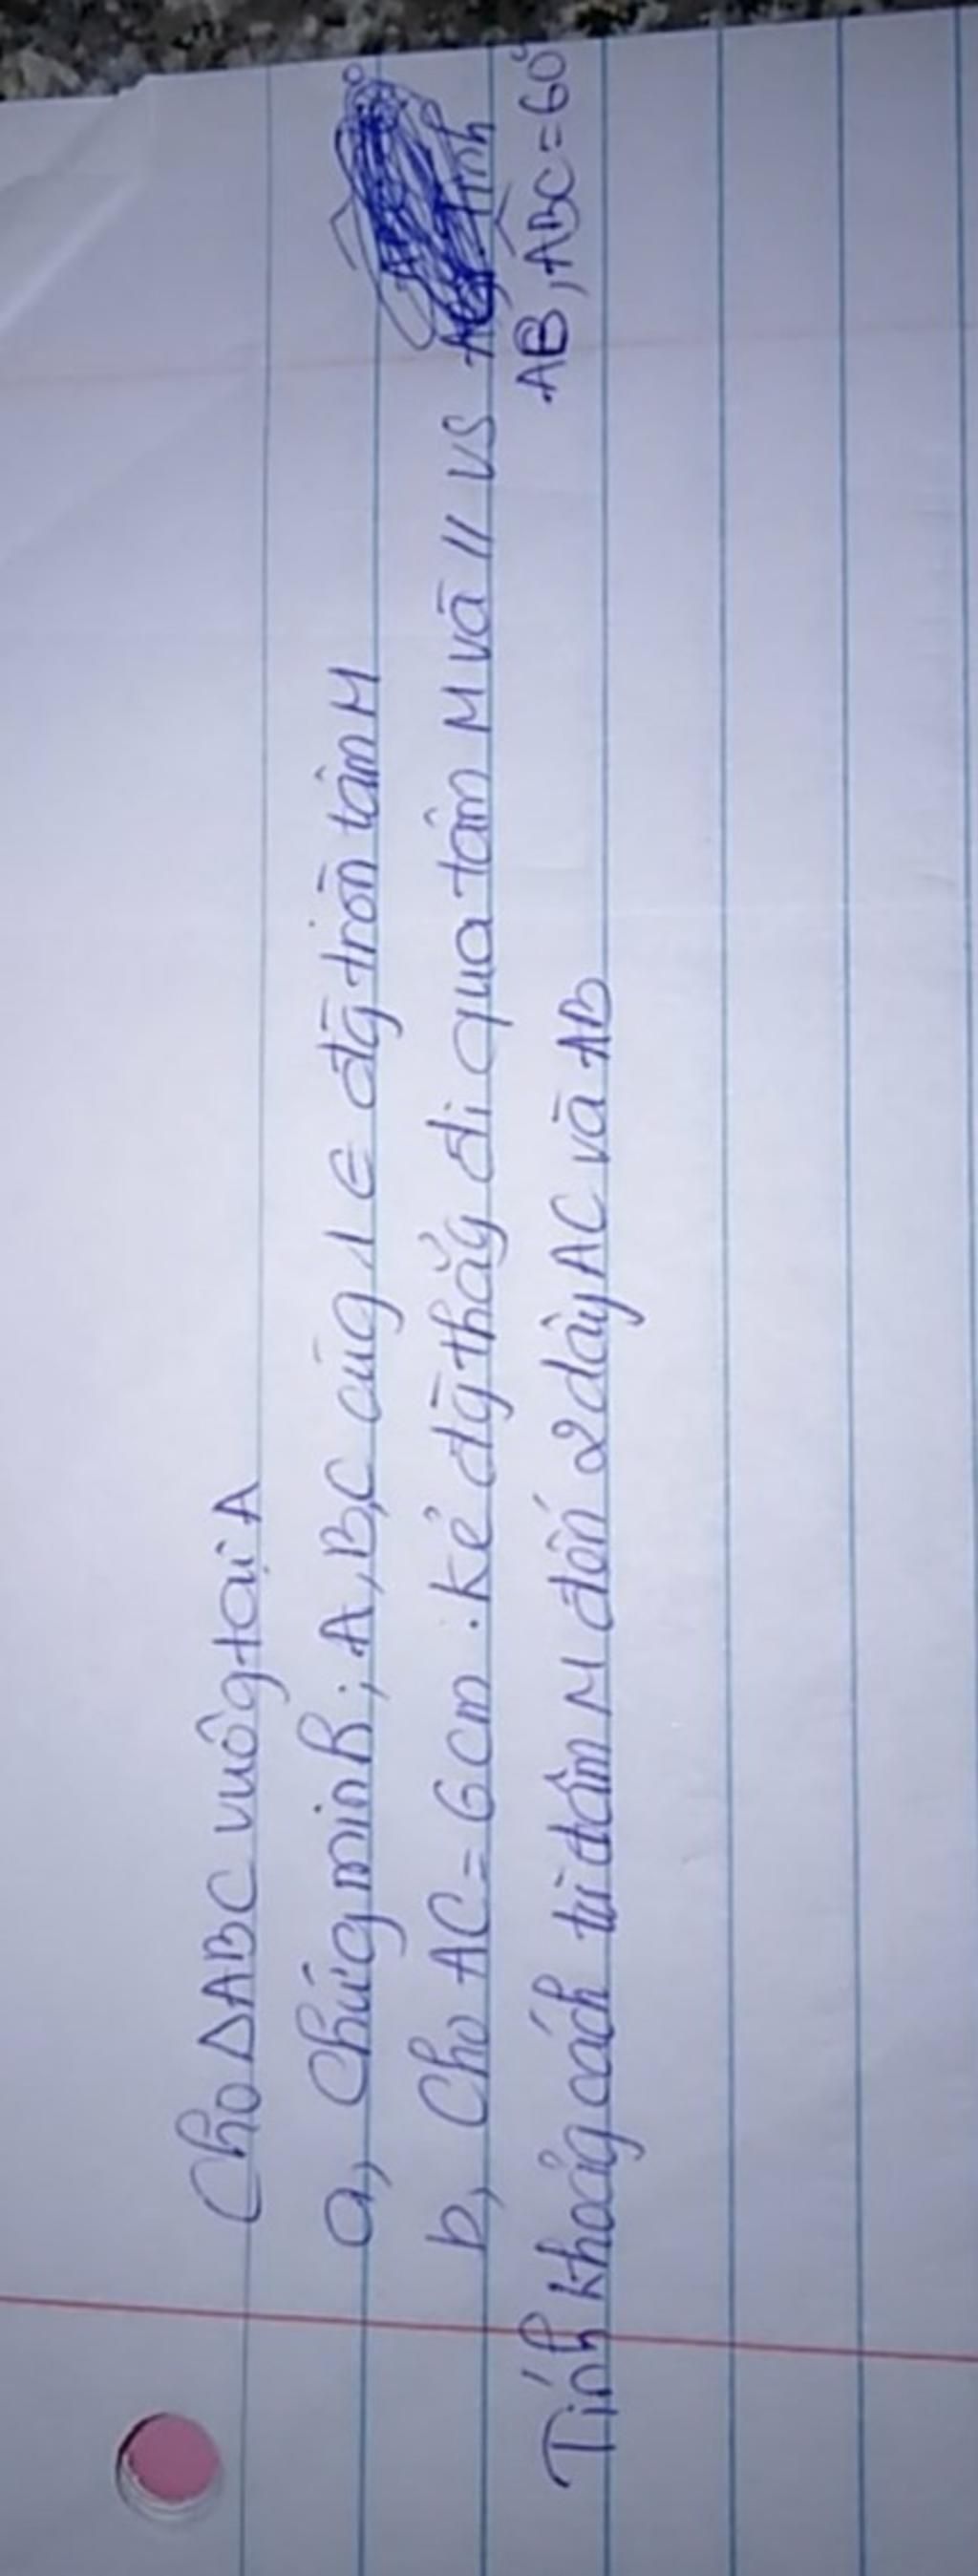 Cho ΔABC vuôg tại A
a, Chứg minh; A, B, C cùg 1 ∈ đg̀ tròn tâm M
b, Cho AC = 6cm. kẻ đg̀ thẳg đi qua tâm M và // vs
AB, ABC = 60°
Tính khoảg cách từ tâm M đến 2 dây AC và AB